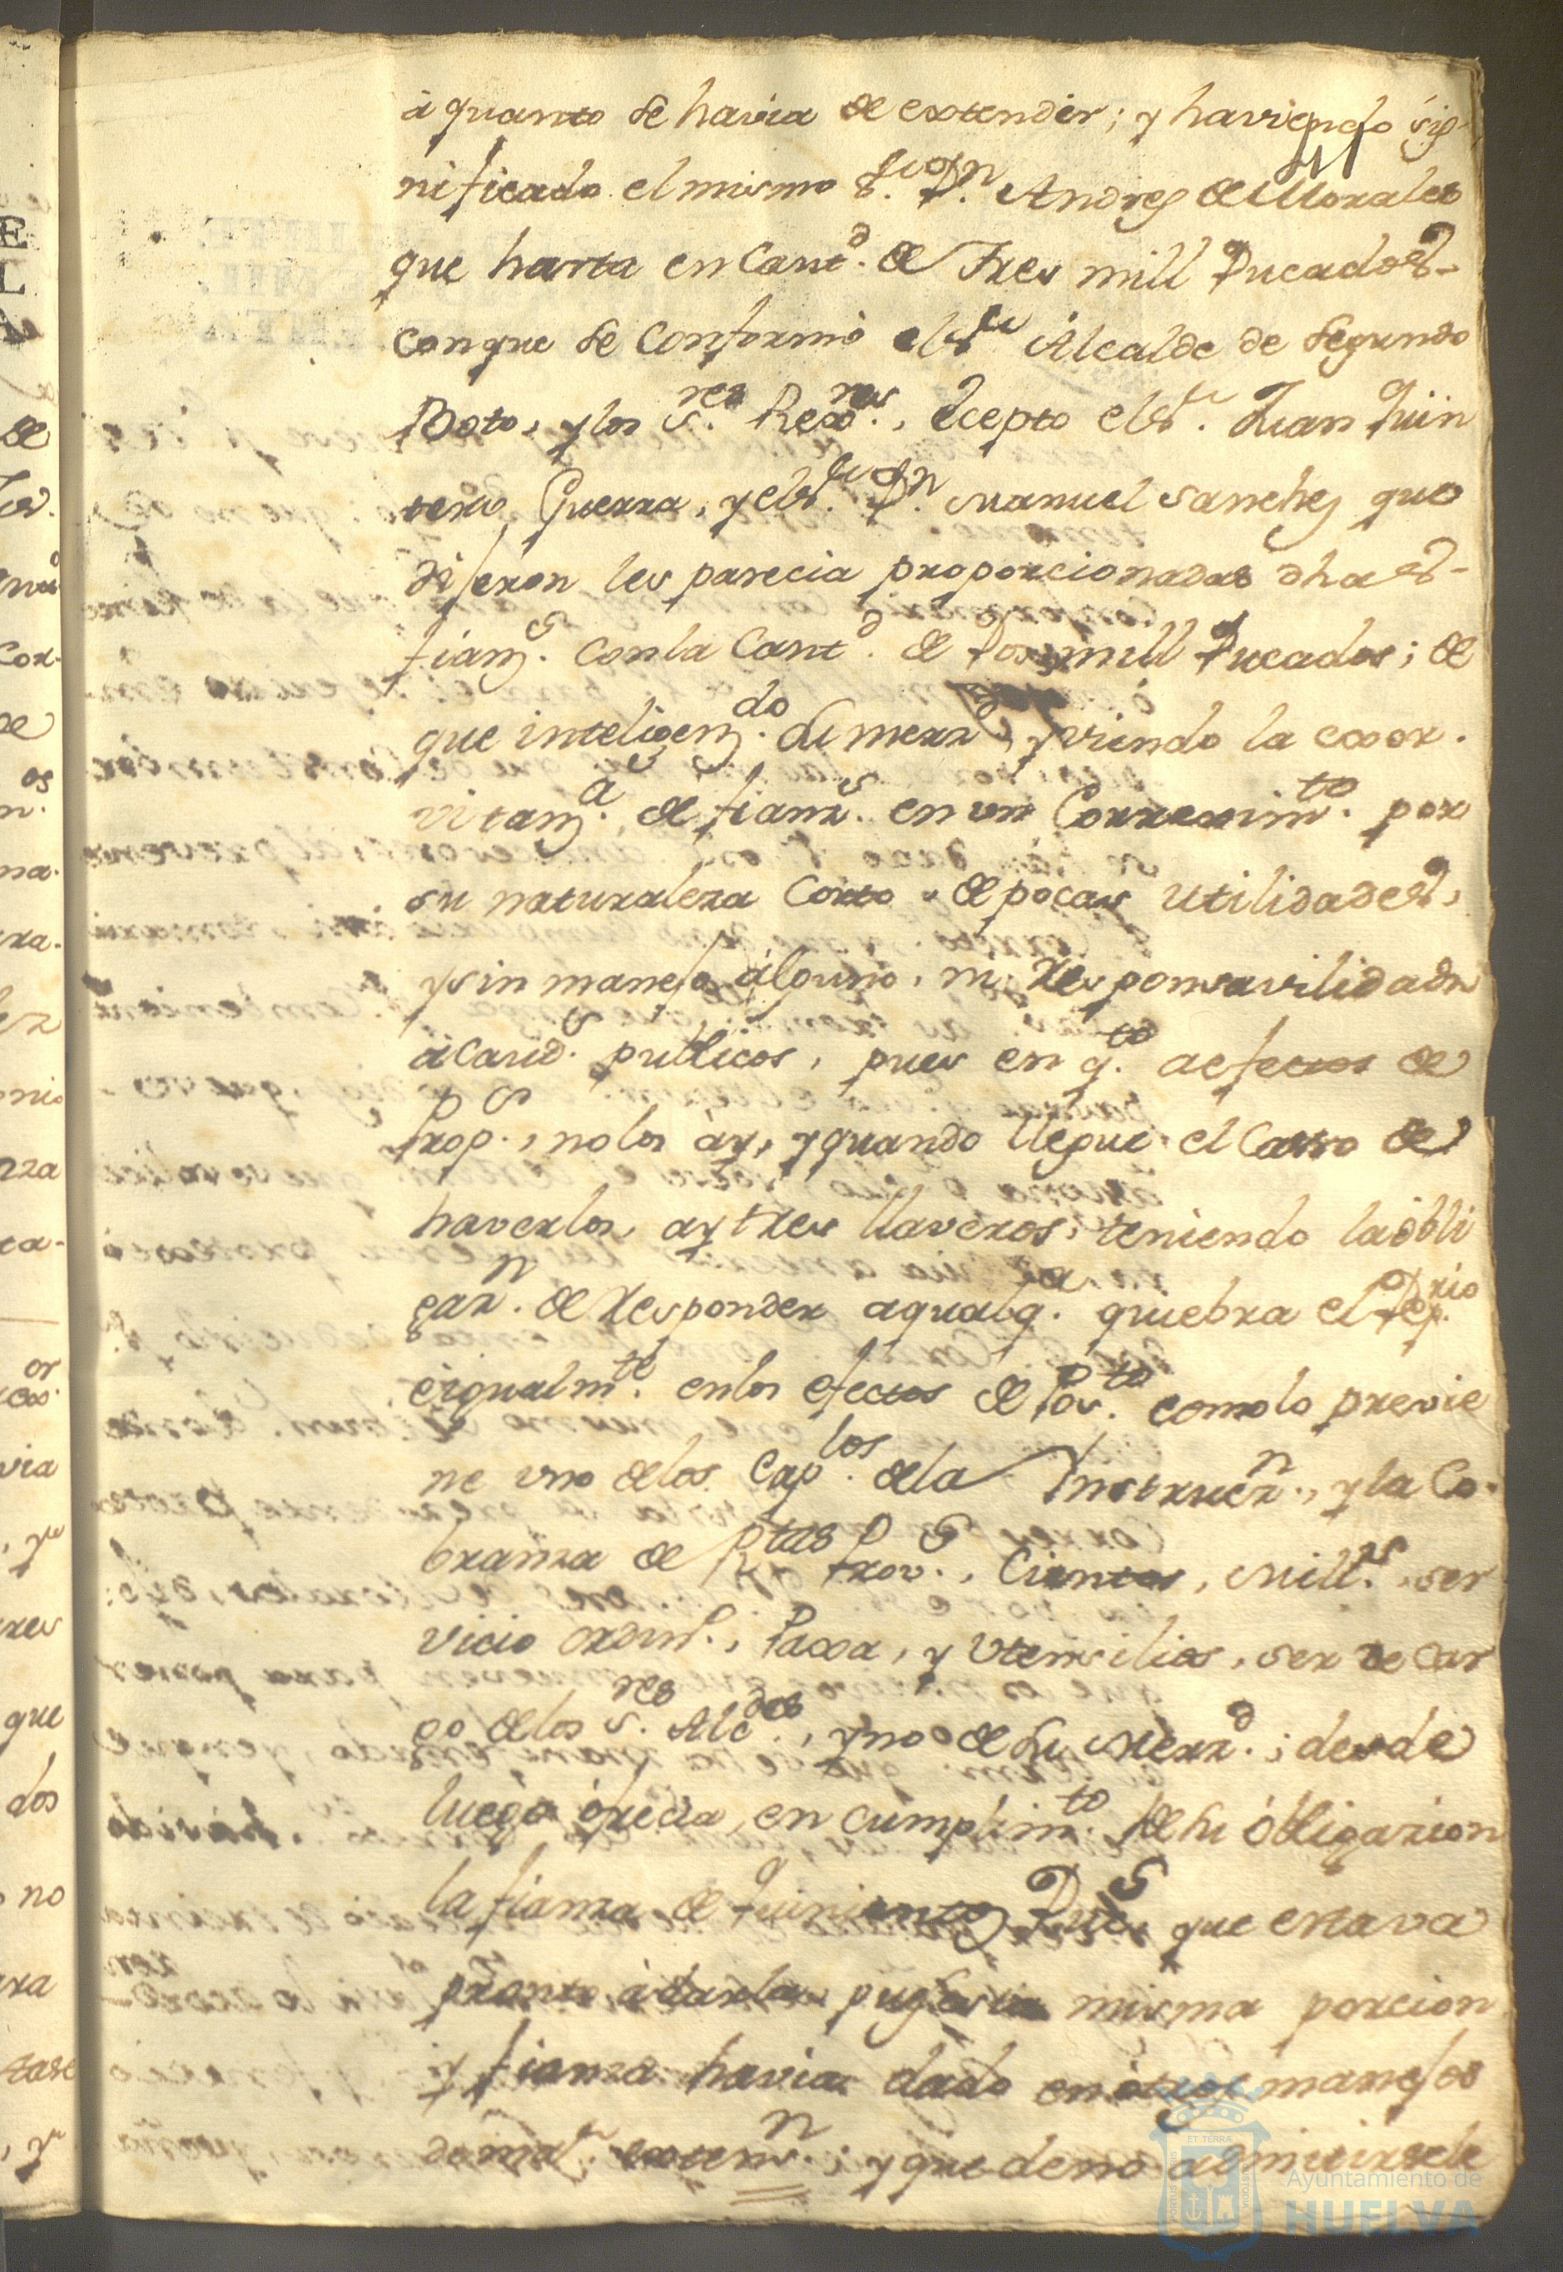 à quanto se havia de extender; y haviendo sig-
nificado el mismo S.ʳ Dⁿ. Andres de Morales
que hasta en Cant.ᵈ de tres mill Ducados-
con que se conformò el S.ʳ Alcalde de segundo
Voto, y los S.ʳᵉˢ Rexid.ʳᵉˢ, ecepto el S.ʳ Juan Quin
tero Guerra, y el S.ʳ Dⁿ. Manuel Sanchez que
dijeron les parecia proporcionadas dhas-
fianz.ˢ con la Cant.ᵈ de Dos mill Ducados; de
que inteligenz.ᵈᵒ su merz.ᵈ, y viendo la exor-
vitanz.ᵃ de fianz.ˢ en un Correximᵗᵒ. por
su naturaleza corto de pocas utilidades,
y sin manejo alguno, ni responsavilidad
à caud.ˢ publicos, pues en q.ᵗᵒ a efectos de
Prop.ˢ, no los ay, y quando llegue el caso de
haverlos, ay tres llaveros, teniendo la obli
gaz.ⁿ de responder a qualq.ᵃ quiebra el Dep.ʳⁱᵒ
e igualm.ᵗᵉ en los efectos de Pos.ᵗᵒ como lo previe
ne uno de los Cap.ˡᵒˢ de la Instrucz.ⁿ, y la Co-
branza de R.ᵗᵃˢ Prov.ˢ, Cientos, Mill.ˢ, ser
vicio ordin.º, Paxa, y Utensilios, ser de car
go de los S.ʳᵉˢ Alc.ᵈᵉˢ, y no de su Merz.ᵈ; desde
luego ofrecia, en cumplim.ᵗᵒ de su obligazion
la fianza de quinientos Duc.ˢ que estava
pronto à darla, pues la misma porcion
y fianza havia dado en otros manejos
de mas.ʳ extens.ⁿ; y que de no admitirsele
ET TERRÆ
Ayuntamiento de
HUELVA